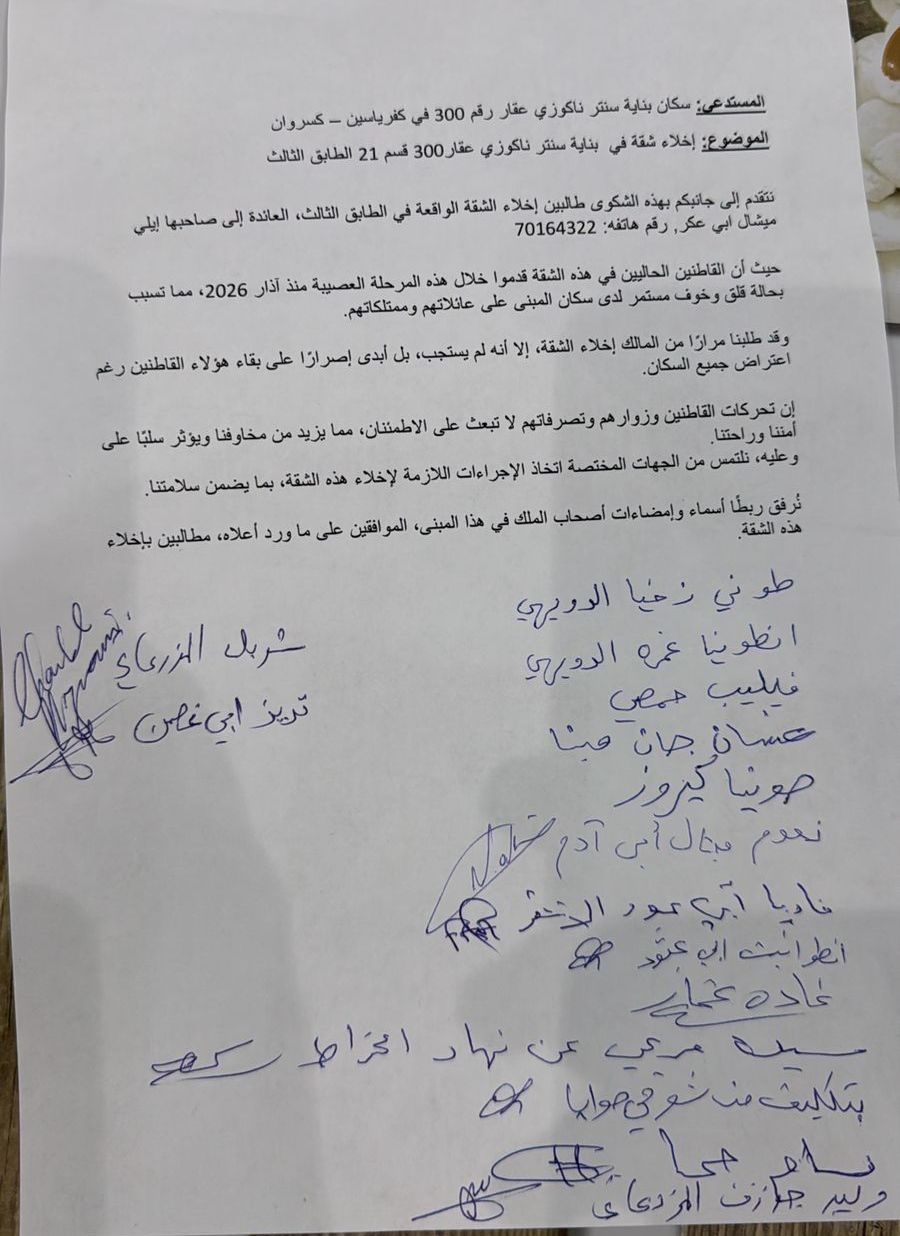 المستدعى: سكان بناية سنتر ناكوزي عقار رقم 300 في كفرياسين – كسروان
الموضوع: إخلاء شقة في بناية سنتر ناكوزي عقار300 قسم 21 الطابق الثالث
نتقدم إلى جانبكم بهذه الشكوى طالبين إخلاء الشقة الواقعة في الطابق الثالث، العائدة إلى صاحبها إيلي
ميشال ابي عكر, رقم هاتفه: 70164322
حيث أن القاطنين الحاليين في هذه الشقة قدموا خلال هذه المرحلة العصيبة منذ آذار 2026، مما تسبب
بحالة قلق وخوف مستمر لدى سكان المبنى على عائلاتهم وممتلكاتهم.
وقد طلبنا مرارًا من المالك إخلاء الشقة، إلا أنه لم يستجب، بل أبدى إصرارًا على بقاء هؤلاء القاطنين رغم
اعتراض جميع السكان.
إن تحركات القاطنين وزوارهم وتصرفاتهم لا تبعث على الاطمئنان، مما يزيد من مخاوفنا ويؤثر سلبًا على
أمننا وراحتنا.
وعليه، نلتمس من الجهات المختصة اتخاذ الإجراءات اللازمة لإخلاء هذه الشقة، بما يضمن سلامتنا.
نُرفق ربطًا أسماء وإمضاءات أصحاب الملك في هذا المبنى، الموافقين على ما ورد أعلاه، مطالبين بإخلاء
هذه الشقة.
طوني زخيا الدويهي
انطونيا عمره الدويهي
فيليب حمصي
غسان جان مينا
صونيا كيروز
نعوم ميشال أبي آدم
فاديا أبي عبود الاشقر
انطوانيت ابي عبود
غاده
مرعي عن نهاد الخراط
بتكليف من شوقي صوايا
وليد جوزف المزرعاني
شربل المزرعاني
تريز ابي غصن